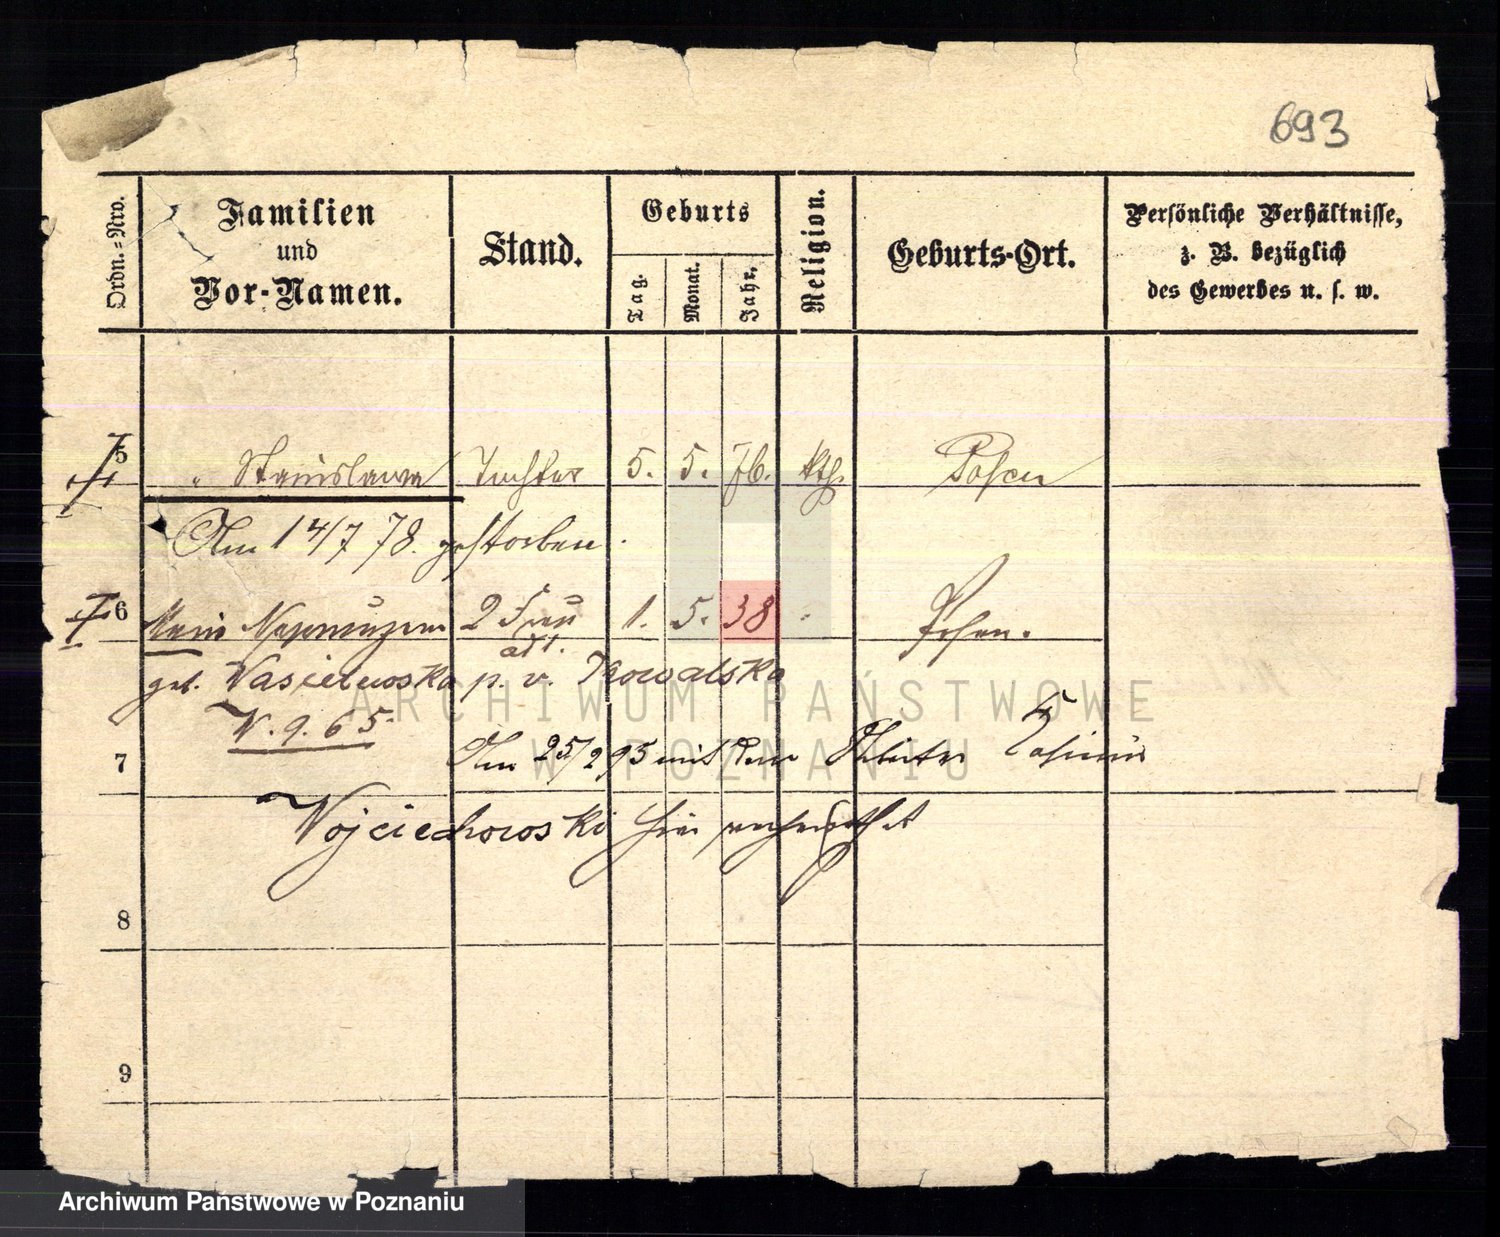 693
Ordn.-Nro.
Familien
und
Vor-Namen.
Stand.
Geburts
Tag.
Monat.
Jahr.
Religion.
Geburts-Ort.
Persönliche Verhältnisse,
z. B. bezüglich
des Gewerbes u. s. w.
5 " Stanislawa Tochter 5. 5. 76. kth. Posen
Am 14/7 78. gestorben.
6 2 Frau 1. 5. 38 " Posen.
geb. Wasielewska p. v. Kowalska
W. 9. 65
7 Am 25/2 95 mit dem Arbeiter Casimir
Wojciechowski hier verheirathet
8
9
ARCHIWUM PAŃSTWOWE
W POZNANIU
Archiwum Państwowe w Poznaniu